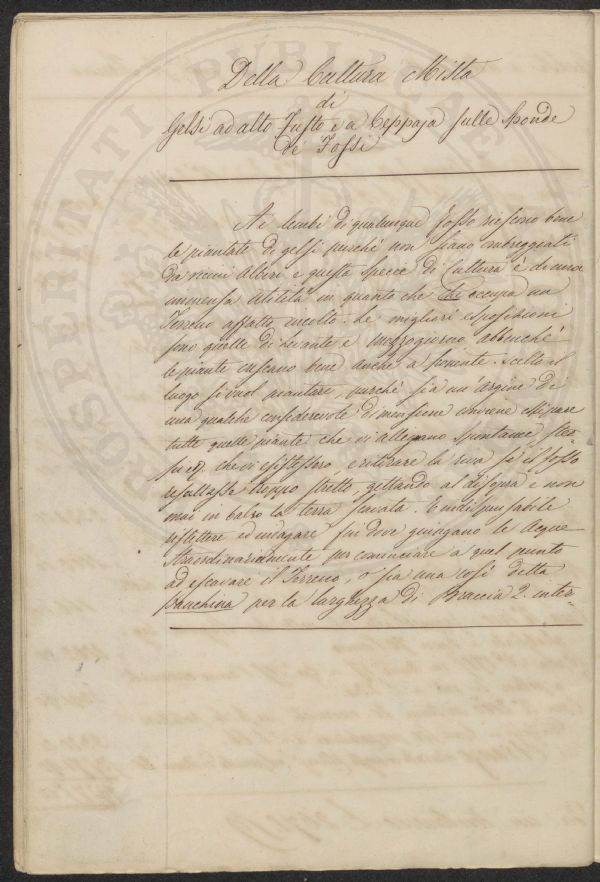 Della Cultura Mista
di
Gelsi ad alto Fusto e a Ceppaja sulle Sponde
de Fossi
Ai lembi di qualunque fosso riescono bene
le piantate di gelsi purché non siano ombreggiati
da vicini Alberi e questa specie di Cultura è di una
immensa utilità in quanto che occupa un
Terreno affatto incolto. Le migliori esposizioni
sono quelle di Levante e mezzogiorno, abbenché
le piante crescano bene anche a ponente. Scelto il
luogo si vuol piantare, purché sia un argine di
una qualche considerevole dimensione conviene estirpare
tutte quelle piante che vi allegano spontanee,
che vi esistessero, e ritirare la riva se il fosso
resultasse troppo stretto, gettando al disopra e non
mai in balzo la terra scavata. E indispensabile
riflettere ed indagare fin dove giungano le Acque
straordinariamente per cominciare a quel punto
ad escavare il Terreno, o sia una così detta
banchina per la larghezza di Braccia 2. inter-
PROSPERITATI PUBLICAE